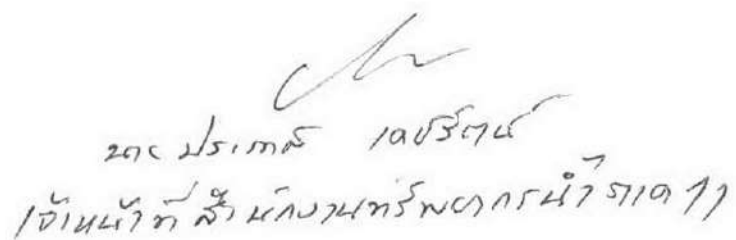 นาย ประภาส เดชรัตน์
เจ้าหน้าที่ สำนักงานทรัพยากรน้ำ ภาค 11